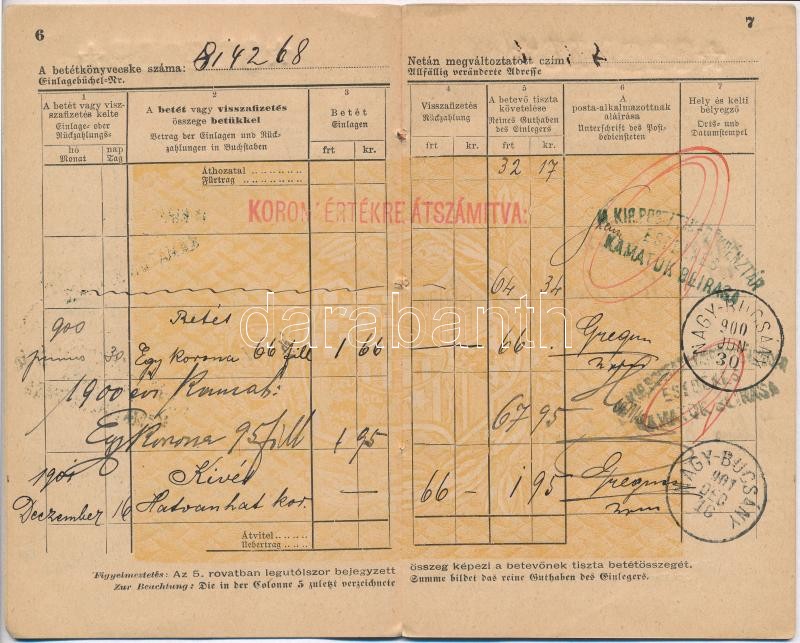 6
A betétkönyvecske száma: 814268
Einlagebüchel-Nr.
7
Netán megváltoztatott czím
Allfällig veränderte Adresse
1
A betét vagy visz-
szafizetés kelte
Einlage- oder
Rückzahlungs-
hó
Monat
nap
Tag
2
A betét vagy visszafizetés
összege betükkel
Betrag der Einlagen und Rück-
zahlungen in Buchstaben
3
Betét
Einlagen
frt
kr.
4
Visszafizetés
Rückzahlung
frt
kr.
5
A betevő tiszta
követelése
Reines Guthaben
des Einlegers
frt
kr.
6
A
posta-alkalmazottnak
aláirása
Unterschrift des Post-
bediensteten
7
Hely és kelti
bélyegző
Orts- und
Datumstempel
Áthozatal
Fürtrag
32 17
KORONAÉRTÉKRE ÁTSZÁMITVA:
KAMATOK BEIRASA
64 34
900 Betét
junius 30. Egy korona 66 fill 1 66 — 66 — Gregus
NAGY-BUCSÁNY
900
JUN
30
1900 évi Kamat:
Egy Korona 95 fill 1 95 67 95
KAMATOK BEIRASA
1901 Kivét
Deczember 16 Hatvanhat kor. — 66 — 1 95 Gregus
NAGY-BUCSÁNY
901
DEC
16
Átvitel
Uebertrag
darabanth
Figyelmeztetés: Az 5. rovatban legutólszor bejegyzett összeg képezi a betevőnek tiszta betétösszegét.
Zur Beachtung: Die in der Colonne 5 zuletzt verzeichnete Summe bildet das reine Guthaben des Einlegers.